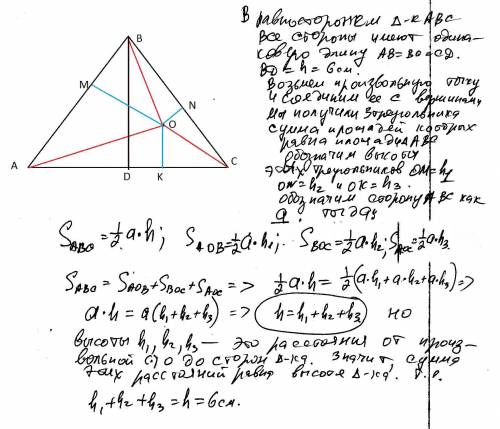 В равностороннем Δ-ке ABC
все стороны имеют одина-
ковую длину AB=BC=CD.
BD = h = 6 см.
Возьмем произвольную точку
и соединим ее с вершинами
мы получили 3 треугольника
сумма площадей которых
равна площади Δ ABC
обозначим высоты
этих треугольников OM=h1
ON=h2 и OK=h3.
обозначим сторону ABC как
a. тогда:
B
M
N
O
A
D
K
C
S ABC = 1/2 a·h; S AOB = 1/2 a·h1; S BOC = 1/2 a·h2; S AOC = 1/2 a·h3
S ABC = S AOB + S BOC + S AOC => 1/2 a·h = 1/2 (a·h1 + a·h2 + a·h3) =>
a·h = a(h1+h2+h3) => h = h1+h2+h3 но
высоты h1, h2, h3 — это расстояния от произ-
вольной т. O до сторон Δ-ка. Значит, сумма
этих расстояний равна высоте Δ-ка. Т.е.
h1 + h2 + h3 = h = 6 см.